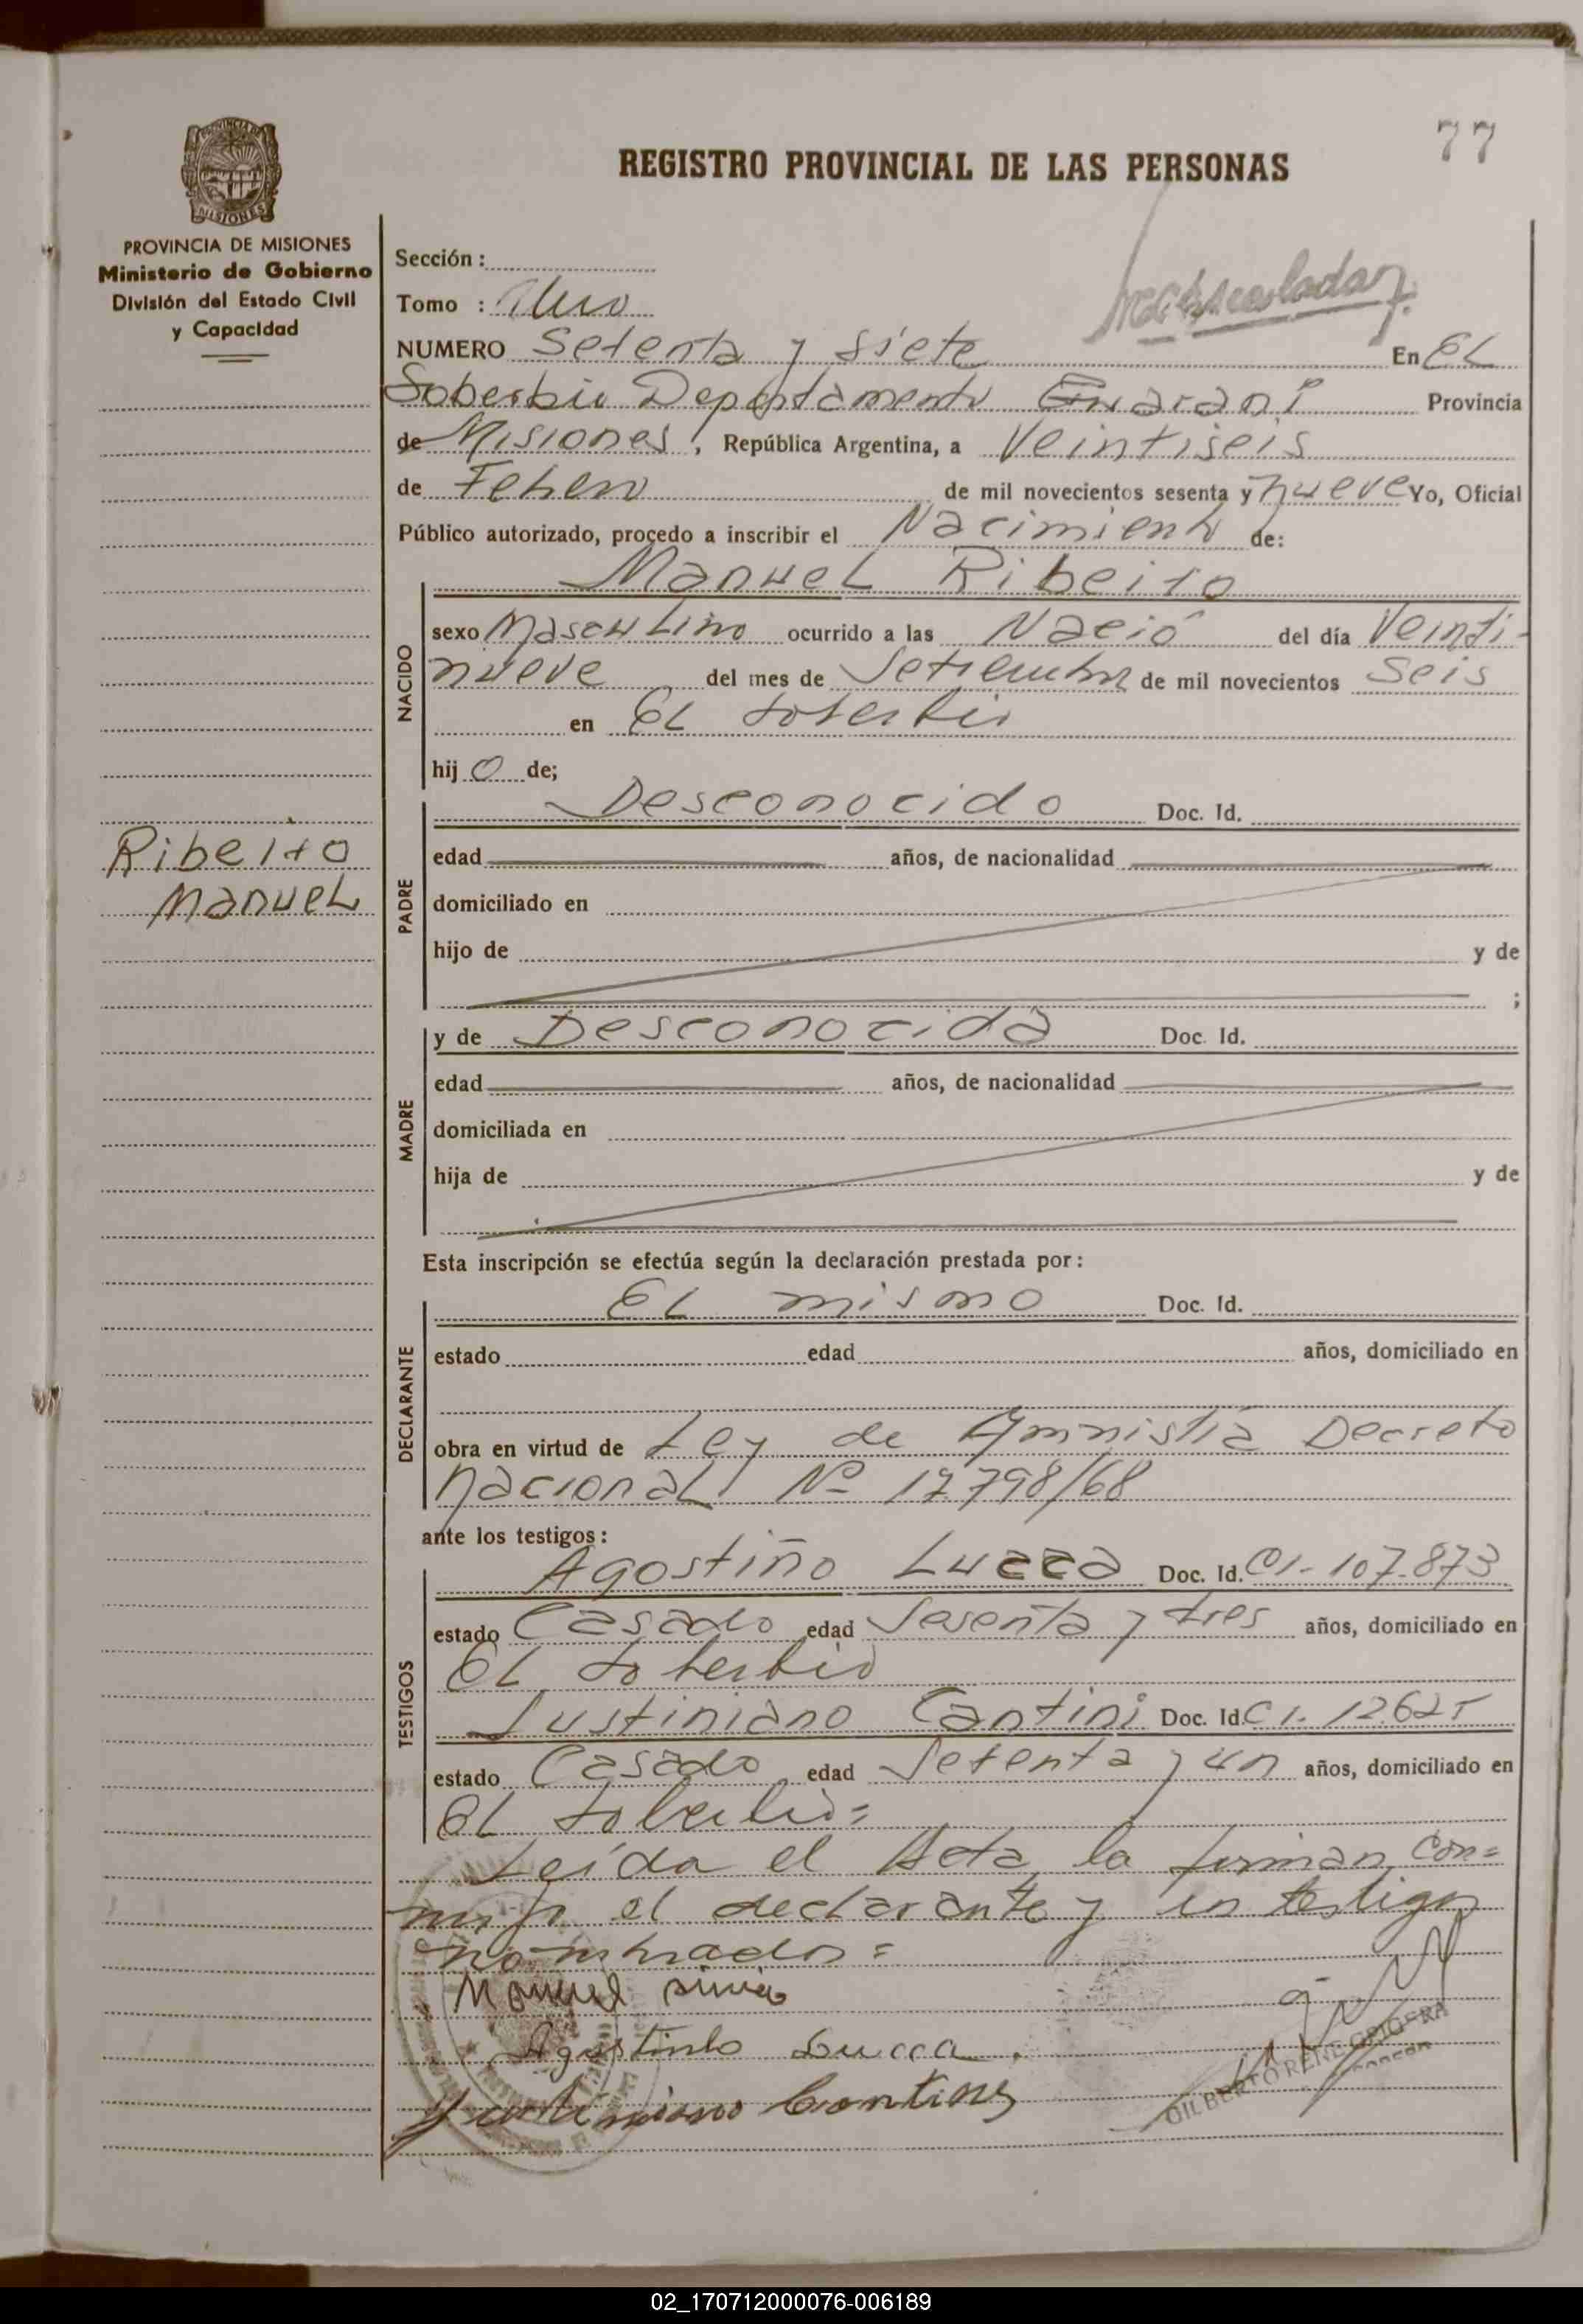 77
REGISTRO PROVINCIAL DE LAS PERSONAS
PROVINCIA DE MISIONES
Ministerio de Gobierno
División del Estado Civil
y Capacidad
Ribeiro
Manuel
Sección :
Tomo : Uno
NUMERO Setenta y Siete En EL
Soberbio Departamento Guaraní Provincia
de Misiones, República Argentina, a Veintiseis
de Febrero de mil novecientos sesenta y nueve Yo, Oficial
Público autorizado, procedo a inscribir el Nacimiento de:
Manuel Ribeiro
NACIDO
sexo Masculino ocurrido a las Nació del día Veinti-
nueve del mes de Setiembre de mil novecientos Seis
en El Soberbio
hij o de;
PADRE
Desconocido Doc. Id.
edad años, de nacionalidad
domiciliado en
hijo de y de
;
MADRE
y de Desconocida Doc. Id.
edad años, de nacionalidad
domiciliada en
hija de y de
Esta inscripción se efectúa según la declaración prestada por:
DECLARANTE
EL mismo Doc. Id.
estado edad años, domiciliado en
obra en virtud de Ley de Amnistía Decreto
Nacional Nº 17.798/68
ante los testigos:
TESTIGOS
Agostiño Lucca Doc. Id. CI-107.873
estado Casado edad Sesenta y tres años, domiciliado en
El Soberbio
Justiniano Cantini Doc. Id. C I.
estado Casado edad Setenta y un años, domiciliado en
El Soberbio=
Leída el Acta, la firman con=
migo el declarante y los testigos
nombrados=
Manuel
Agostinho Lucca.
Justiniano Contini
GILBERTO RENE GRIGERA
02_170712000076-006189